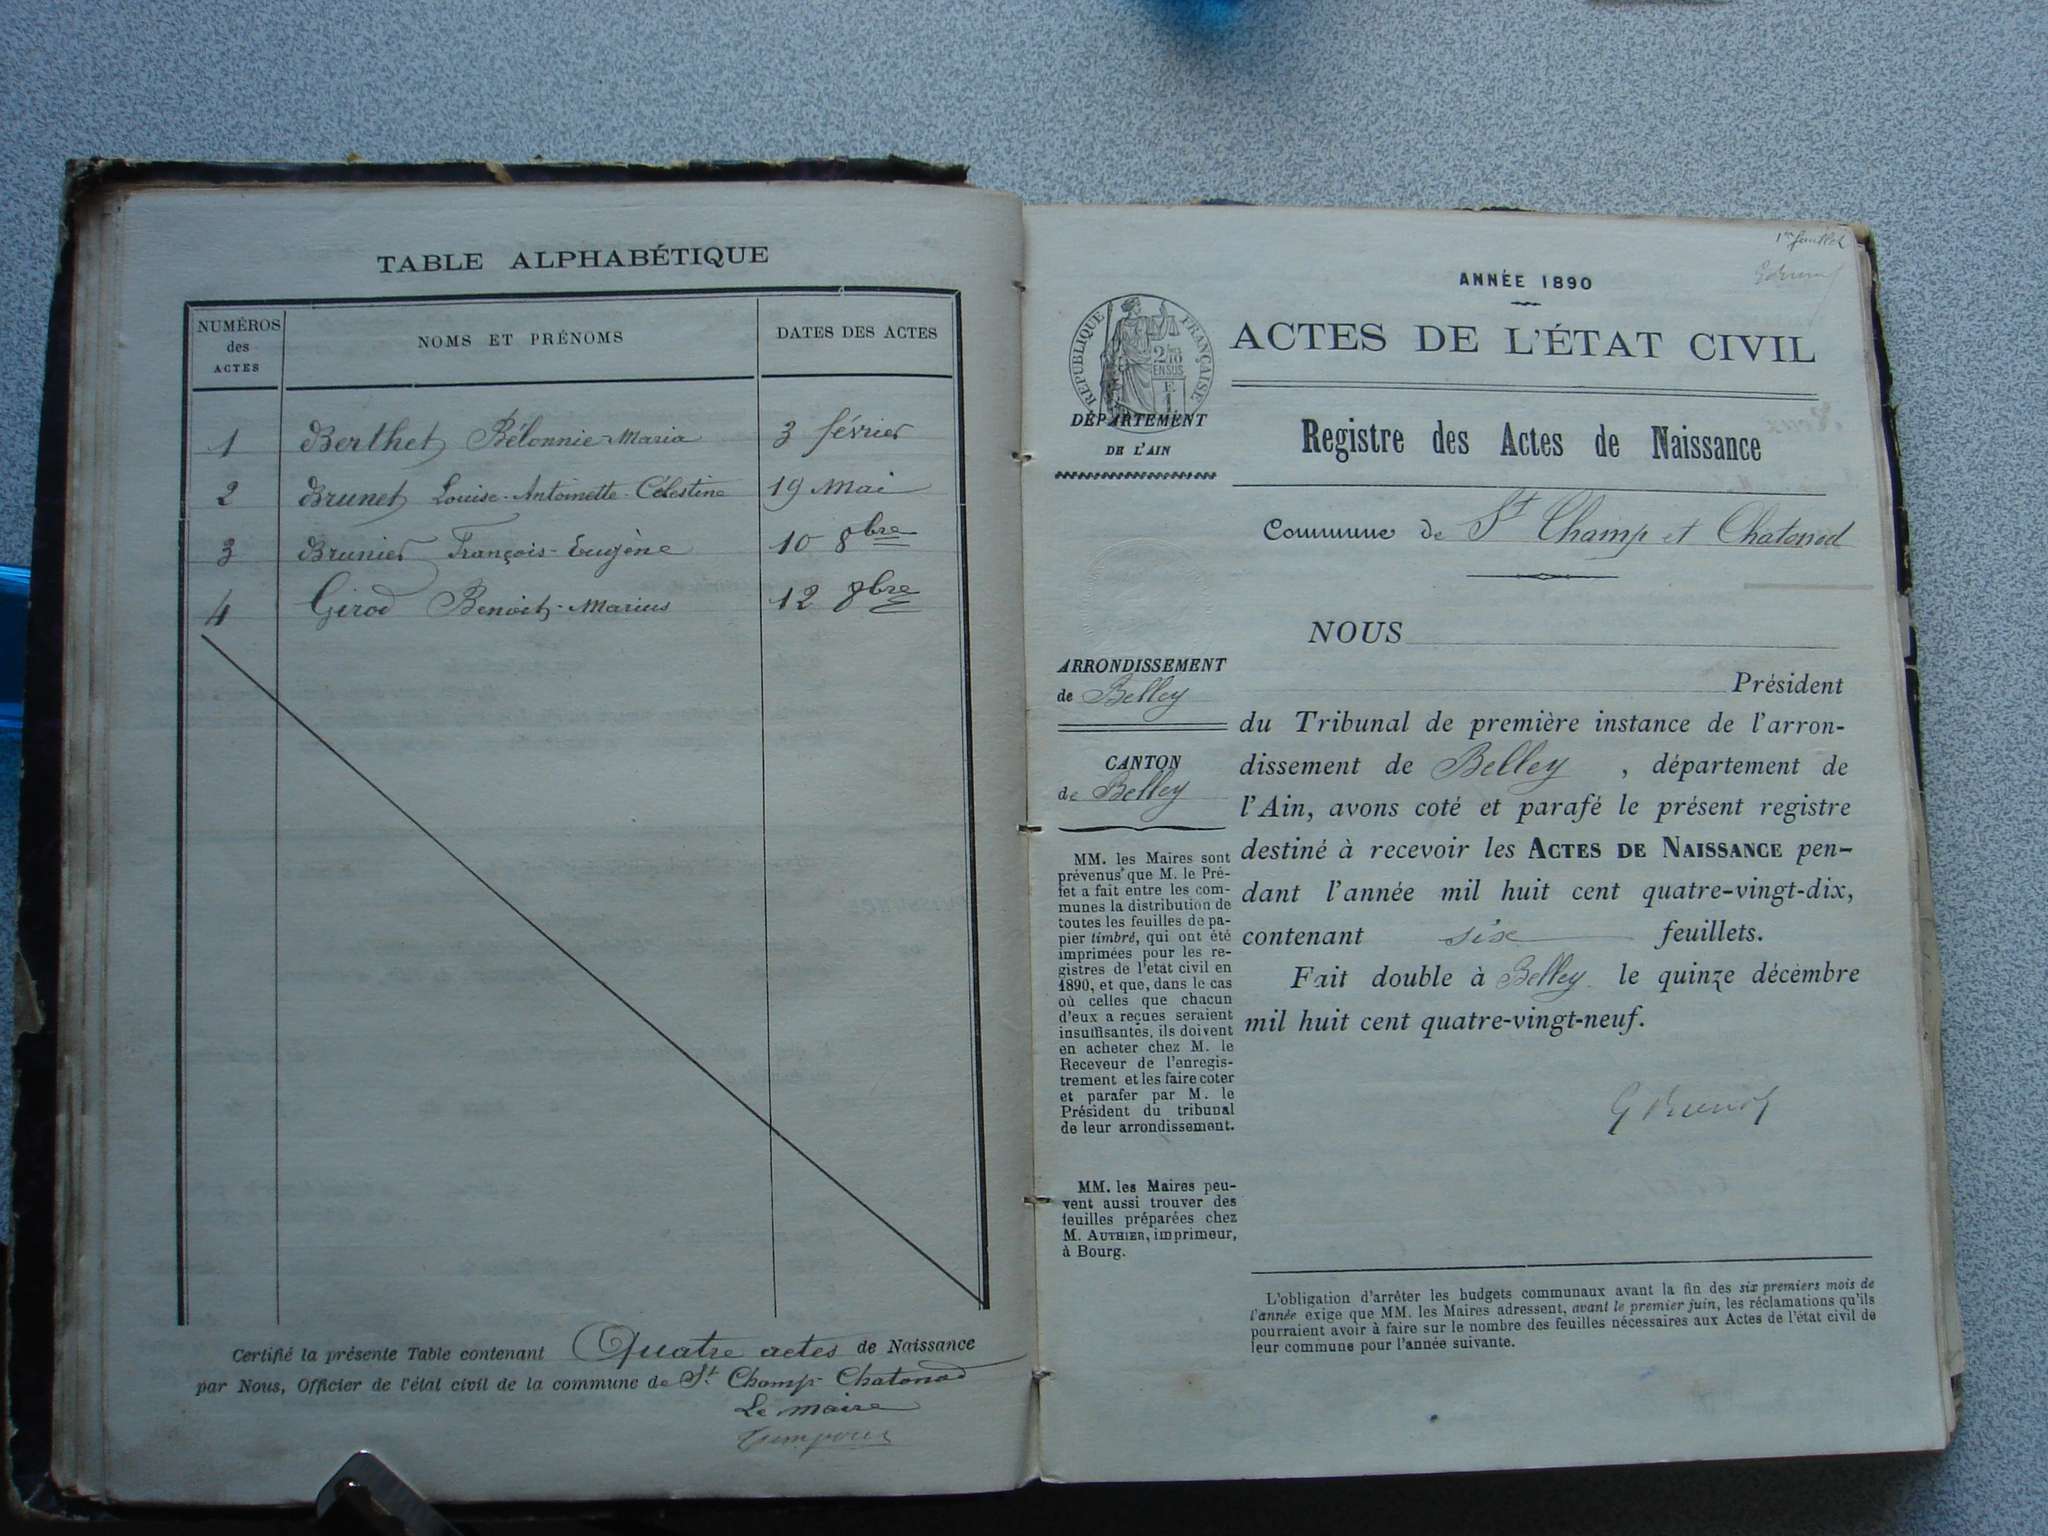 TABLE ALPHABÉTIQUE
NUMÉROS
des
ACTES
NOMS ET PRÉNOMS
DATES DES ACTES
1 Berthet Pélonnie-Maria 3 février
2 Brunet Louise-Antoinette-Célestine 19 Mai
3 Brunier François-Eugène 10 8bre
4 Girod Benoit-Marius 12 8bre
Certifié la présente Table contenant Quatre actes de Naissance
par Nous, Officier de l'état civil de la commune de St. Champ-Chatonod
Le maire
1er feuillet
ANNÉE 1890
RÉPUBLIQUE FRANÇAISE
ACTES DE L'ÉTAT CIVIL
DÉPARTEMENT
DE L'AIN
Registre des Actes de Naissance
Commune de St Champ et Chatonod
NOUS
ARRONDISSEMENT
de Belley
CANTON
de Belley
MM. les Maires sont
prévenus que M. le Pré-
fet a fait entre les com-
munes la distribution de
toutes les feuilles de pa-
pier timbré, qui ont été
imprimées pour les re-
gistres de l'état civil en
1890, et que, dans le cas
où celles que chacun
d'eux a reçues seraient
insuffisantes, ils doivent
en acheter chez M. le
Receveur de l'enregis-
trement et les faire coter
et parafer par M. le
Président du tribunal
de leur arrondissement.
MM. les Maires peu-
vent aussi trouver des
feuilles préparées chez
M. AUTHIER, imprimeur,
à Bourg.
Président
du Tribunal de première instance de l'arron-
dissement de Belley , département de
l'Ain, avons coté et parafé le présent registre
destiné à recevoir les ACTES DE NAISSANCE pen-
dant l'année mil huit cent quatre-vingt-dix,
contenant six feuillets.
Fait double à Belley le quinze décembre
mil huit cent quatre-vingt-neuf.
L'obligation d'arrêter les budgets communaux avant la fin des six premiers mois de
l'année exige que MM. les Maires adressent, avant le premier juin, les réclamations qu'ils
pourraient avoir à faire sur le nombre des feuilles nécessaires aux Actes de l'état civil de
leur commune pour l'année suivante.